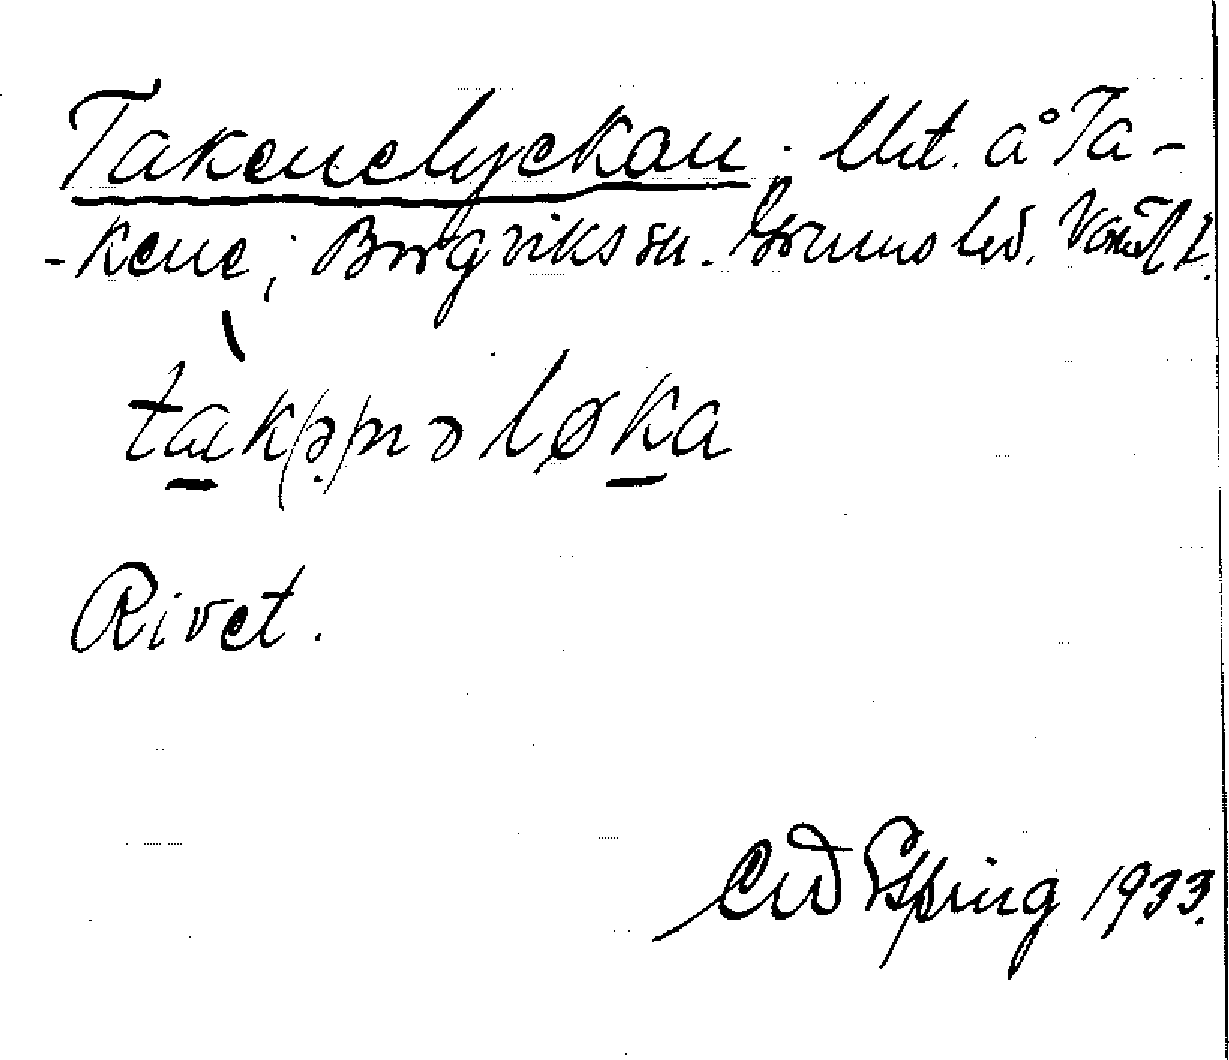 Takenelyckan. Ust. å Ta-
-kene; Borgviks sn. Grums hd. Värml l.
tak(ə)nəløka
Rivet.
Espring 1933.